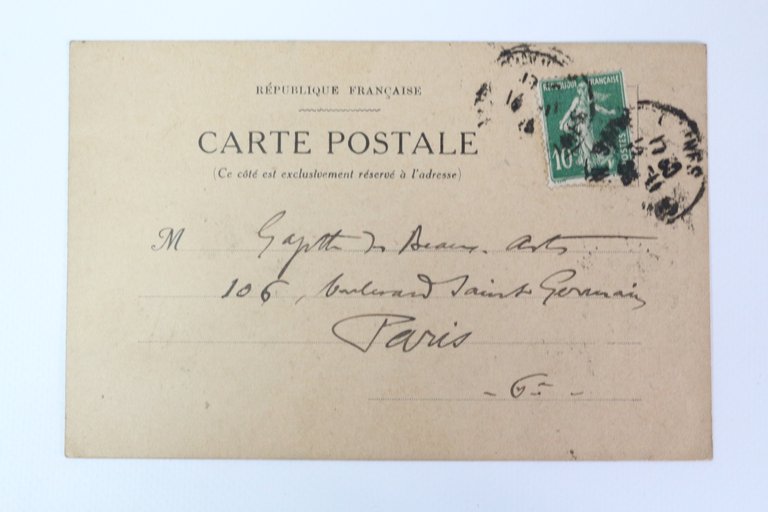 RÉPUBLIQUE FRANÇAISE
CARTE POSTALE
(Ce côté est exclusivement réservé à l'adresse)
REPUBLIQUE FRANÇAISE
10
POSTES
M Gazette des Beaux-Arts
106, boulevard Saint Germain
Paris
- 6e -